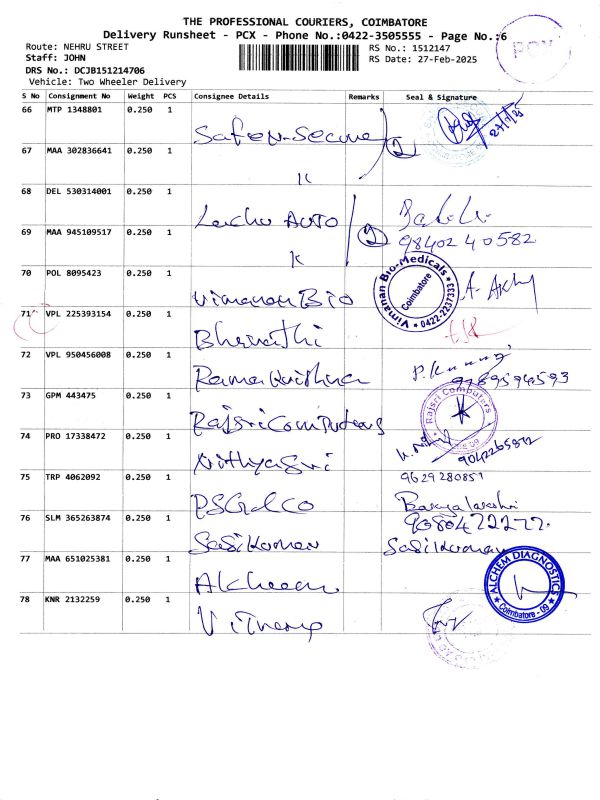 THE PROFESSIONAL COURIERS, COIMBATORE
Delivery Runsheet - PCX - Phone No.:0422-3505555 - Page No.:6
Route: NEHRU STREET
RS No.: 1512147
PCX
Staff: JOHN
RS Date: 27-Feb-2025
DRS No.: DCJB151214706
Vehicle: Two Wheeler Delivery
S No Consignment No Weight PCS Consignee Details Remarks Seal & Signature
66 MTP 1348801 0.250 1
Safe-n-Secure
27/2/25
67 MAA 302836641 0.250 1
2
68 DEL 530314001 0.250 1
AUTO
69 MAA 945109517 0.250 1
2
98402 40582
70 POL 8095423 0.250 1
Vimanan Bio
Vimanan Bio-Medicals
Coimbatore
0422-2237333
71 VPL 225393154 0.250 1
Bharathi
72 VPL 950456008 0.250 1
Ramakrishna
9789594593
73 GPM 443475 0.250 1
Rajsri Computers
Rajsri Computers
74 PRO 17338472 0.250 1
Nithyasri
75 TRP 4062092 0.250 1
9629280851
PSG & CO
76 SLM 365263874 0.250 1
Sasikumar
Sasikumar
77 MAA 651025381 0.250 1
Alcheem
ALCHEM DIAGNOSTICS
Coimbatore - 09
78 KNR 2132259 0.250 1